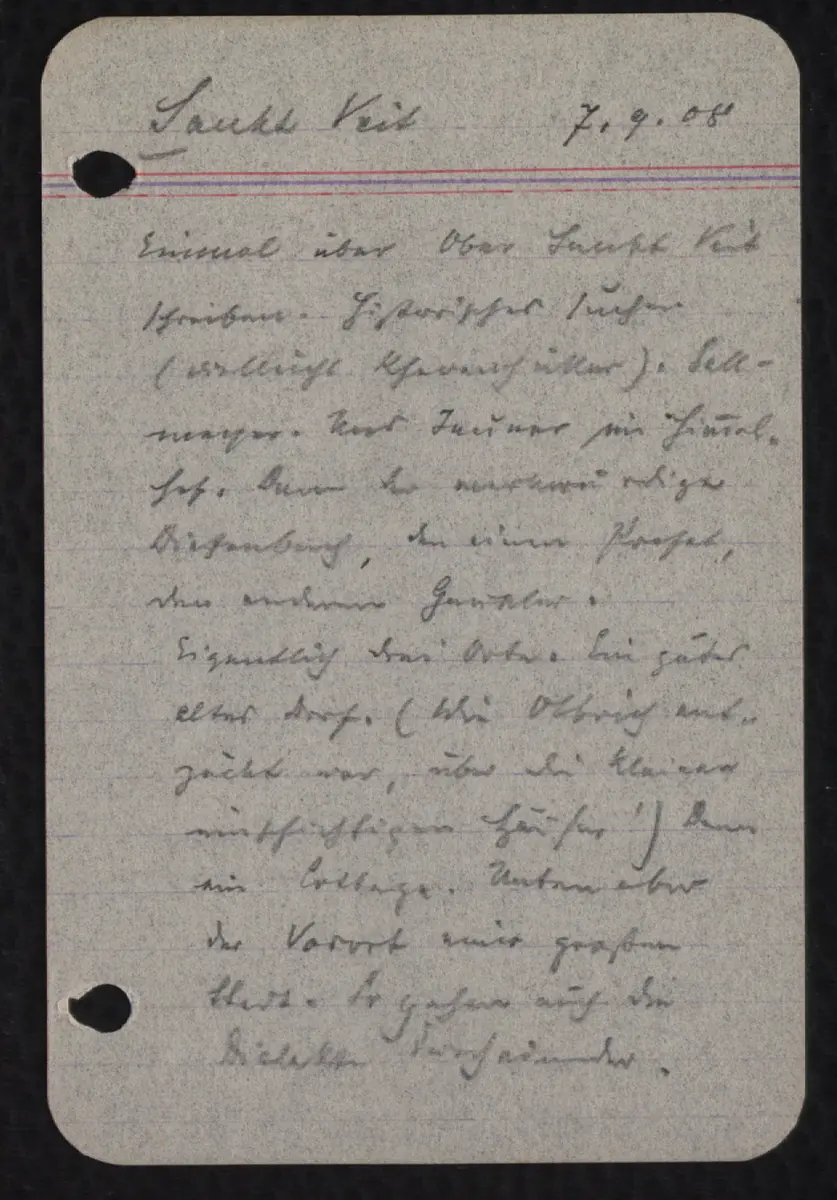 Sankt Veit 7. 9. 08
Einmal über Ober Sankt Veit
schreiben. Historisches suchen
(vielleicht Khevenhüller). Sell-
mayer. Und Jauner im Himmel-
hof. Dann der merkwürdige
Diefenbach, den einen Profet,
den anderen Gaukler.
Eigentlich drei Orte. Ein gutes
altes Dorf. (Wie Olbrich ent-
zückt war, über die kleinen
einschichtigen Häuser!) Dann
ein Cottage. Unten aber
der Vorort einer großen
Stadt. So gehen auch die
Dialekte durcheinander.